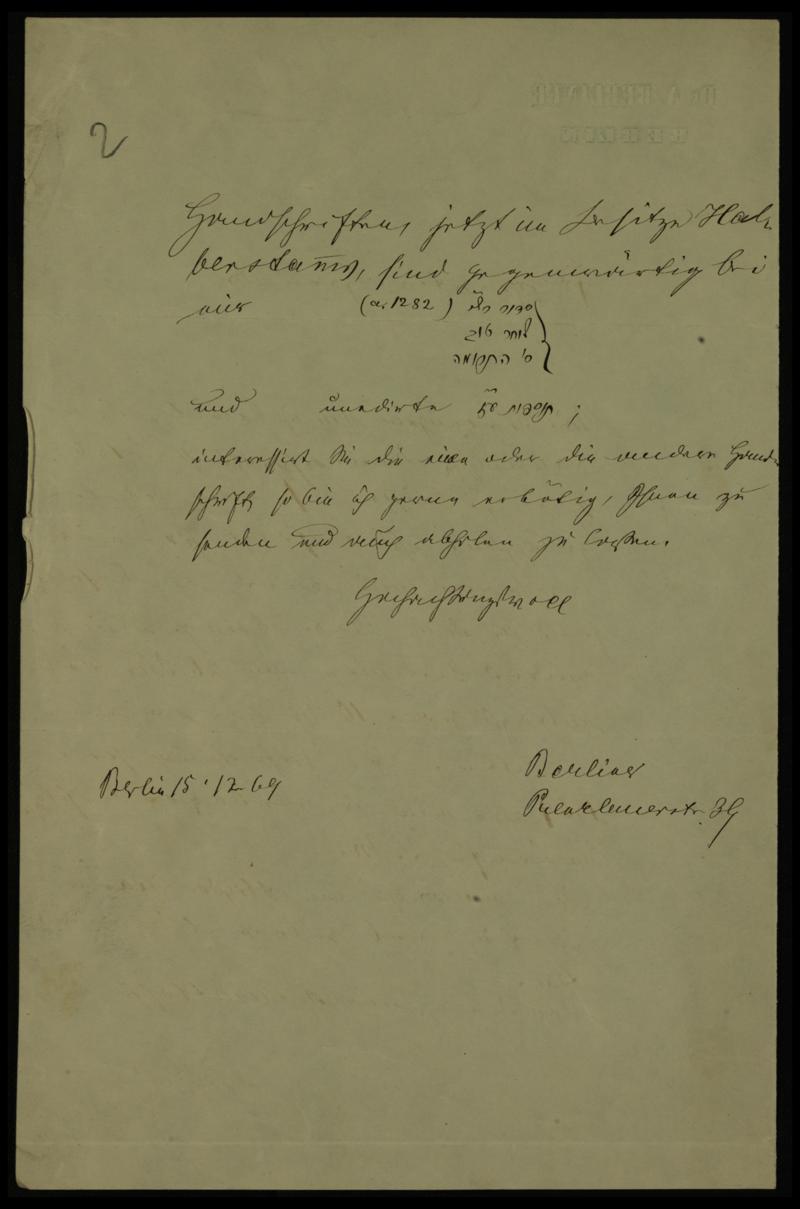 2
Handschriften, jetzt im Besitze Hal-
berstamm's, sind gegenwärtig bei
mir (a. 1282)
שוחר טוב
ס' התקומה
und unedirte תוספות ;
interessirt Sie die eine oder die andere Hand-
schrift, so bin ich gerne erbötig, Ihnen zu
senden und auch abholen zu lassen.
Hochachtungsvoll
Berliner
Berlin 15 · 12 69
39